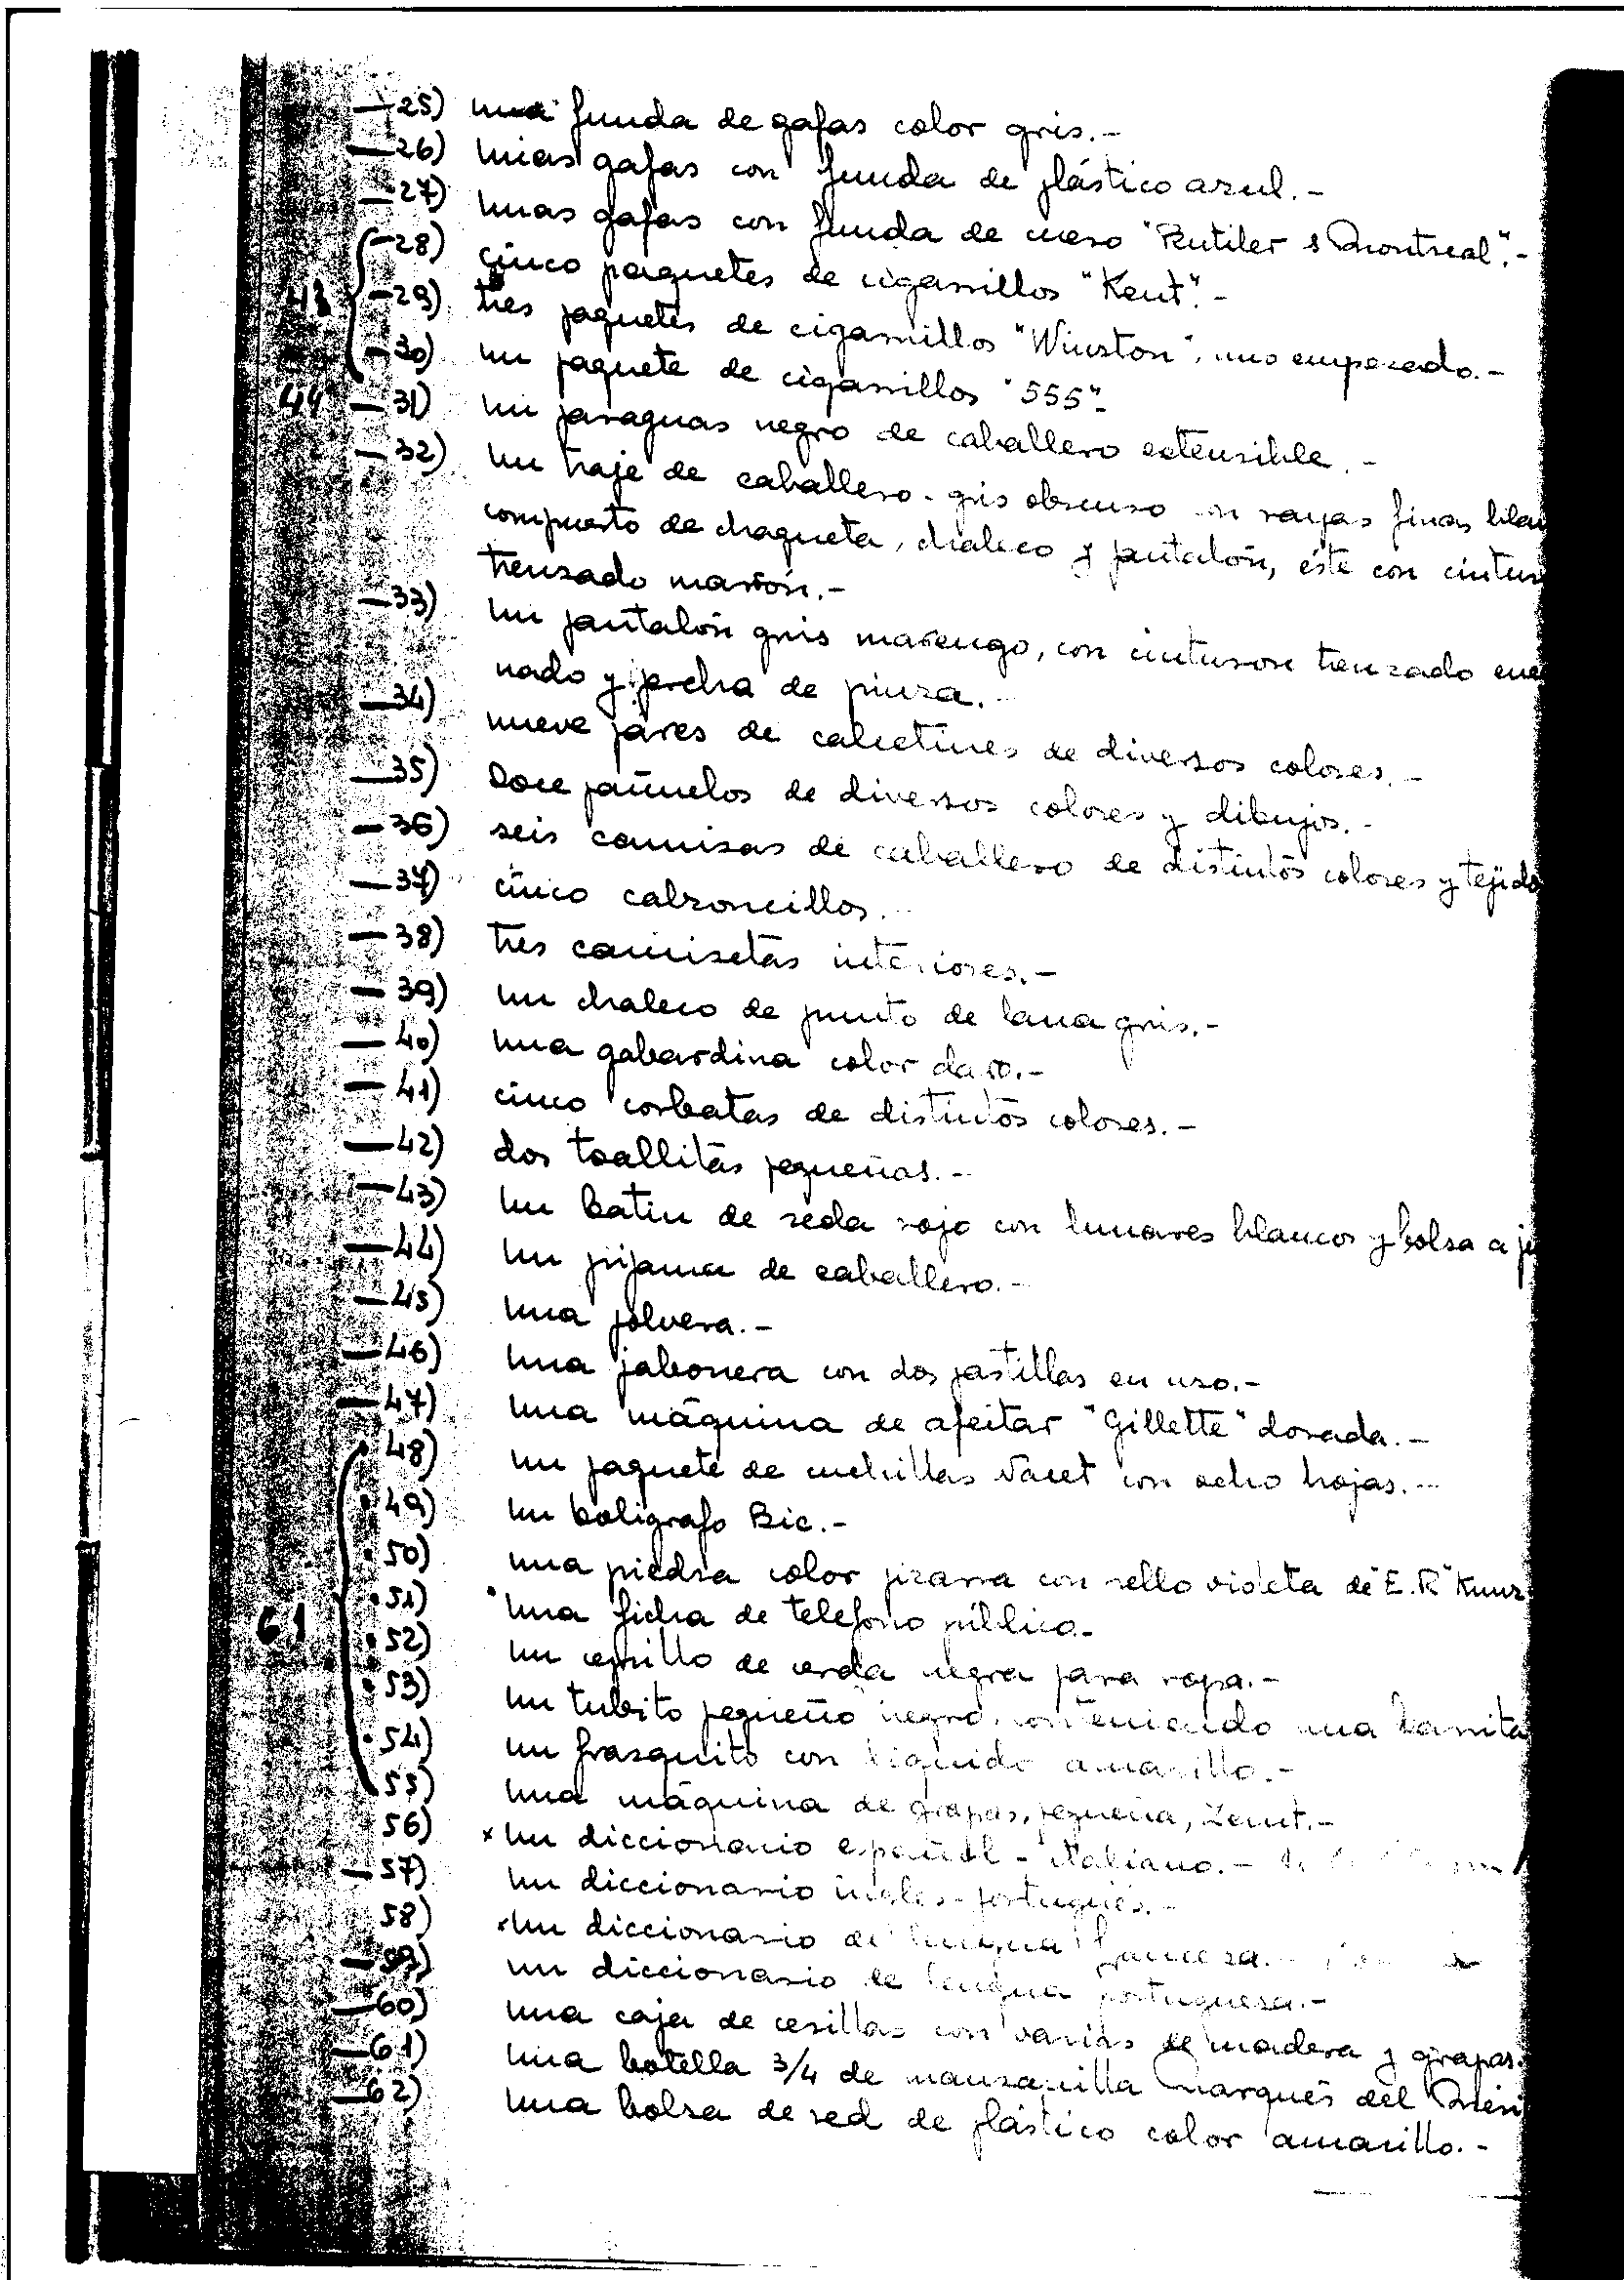 —25) una funda de gafas color gris.-
—26) unas gafas con funda de plástico azul.-
—27) unas gafas con funda de cuero "Rutiler & Montreal".-
—28) cinco paquetes de cigarrillos "Kent".-
43 —29) tres paquetes de cigarrillos "Winston", uno empezado.-
—30) un paquete de cigarrillos "555".-
44 —31) un paraguas negro de caballero extensible.-
—32) un traje de caballero - gris obscuro con rayas finas blan
compuesto de chaqueta, chaleco y pantalón, éste con cintur
trenzado marrón.-
—33) un pantalón gris marengo, con cinturon trenzado
nado y percha de pinza.-
—34) nueve pares de calcetines de diversos colores.-
—35) Doce pañuelos de diversos colores y dibujos.-
—36) seis camisas de caballero de distintos colores y tejido
—37) cinco calzoncillos.-
—38) tres camisetas interiores.-
—39) un chaleco de punto de lana gris.-
—40) una gabardina color claro.-
—41) cinco corbatas de distintos colores.-
—42) dos toallitas pequeñas.-
—43) un batin de seda rojo con lunares blancos y bolsa a ju
—44) un pijama de caballero.-
—45) una polvera.-
—46) una jabonera con dos pastillas en uso.-
—47) una máquina de afeitar "Gillette" dorada.-
48) un paquete de cuchillas Nacet con ocho hojas.-
49) un boligrafo Bic.-
50) una piedra color pizarra con sello violeta de "E.R" Kunz
51) una ficha de telefono público.-
61 52) un cepillo de cerda negra para ropa.-
53) un tubito pequeño negro, conteniendo una barrita
54) un frasquito con liquido amarillo.-
55) una máquina de grapas, pequeña,
56) x un diccionario español - italiano.-
—57) un diccionario ingles - portugués.-
58) x un diccionario de lengua francesa.-
—59) un diccionario de lengua portuguesa.-
—60) una caja de cerillas con varias de madera y grapas.
—61) una botella 3/4 de manzanilla Marqués del Méri
—62) una bolsa de red de plástico color amarillo.-